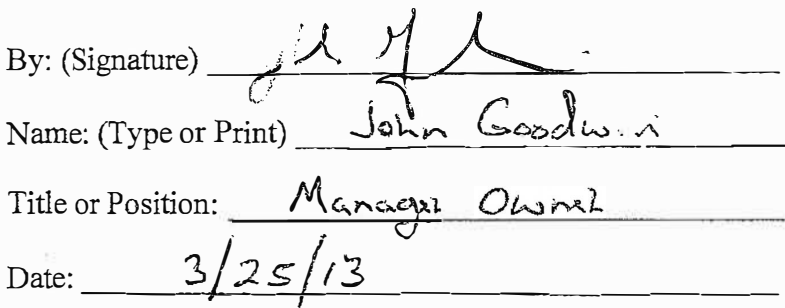 By: (Signature)
Name: (Type or Print) John Goodwin
Title or Position: Manager Owner
Date: 3/25/13